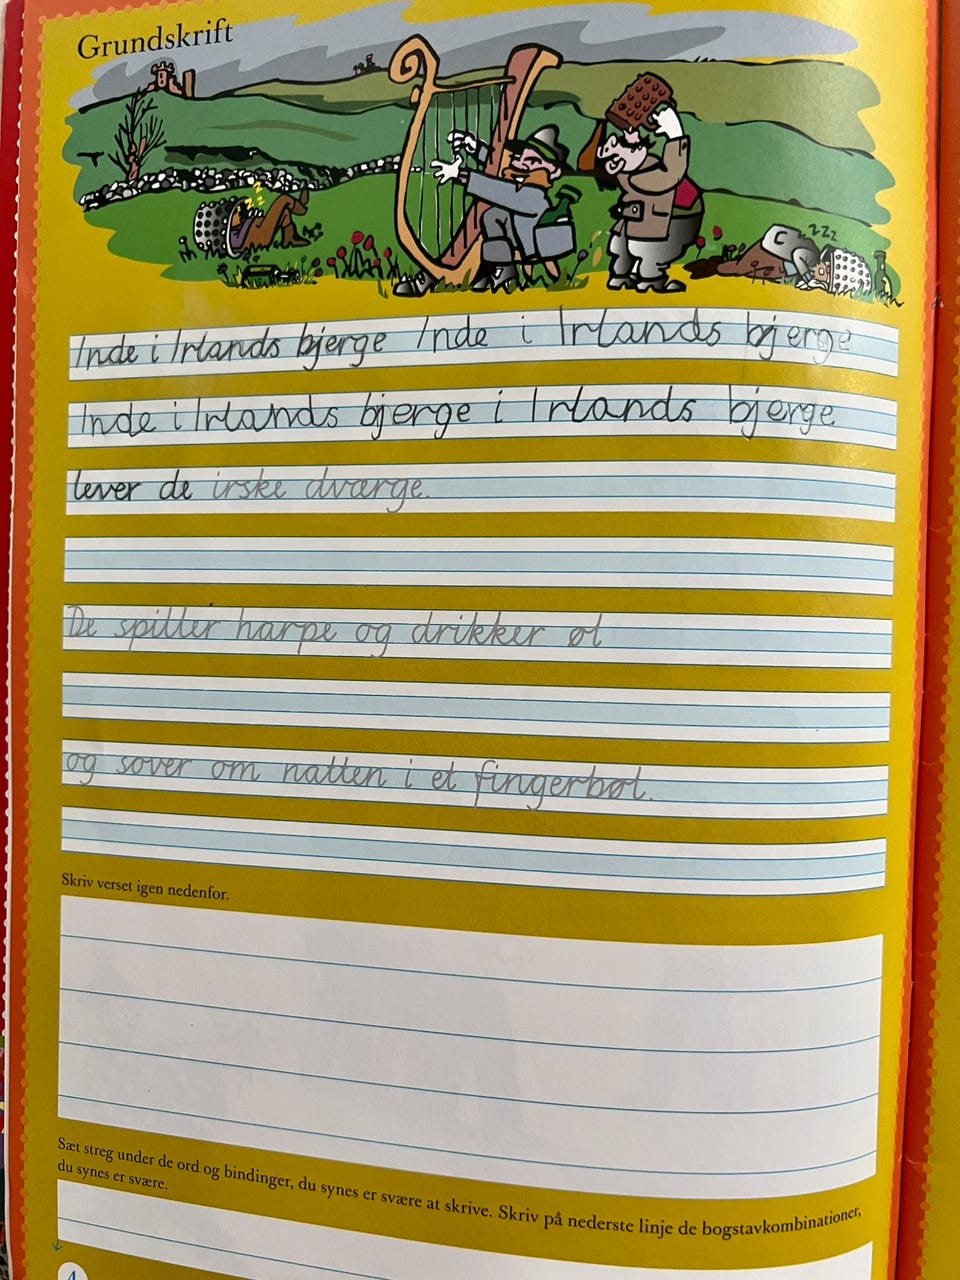 Grundskrift
z z z
z z z
Inde i Irlands bjerge Inde i Irlands bjerge
Inde i Irlands bjerge i Irlands bjerge
lever de irske dværge.
De spiller harpe og drikker øl
og sover om natten i et fingerbøl.
Skriv verset igen nedenfor.
Sæt streg under de ord og bindinger, du synes er svære at skrive. Skriv på nederste linje de bogstavkombinationer,
du synes er svære.